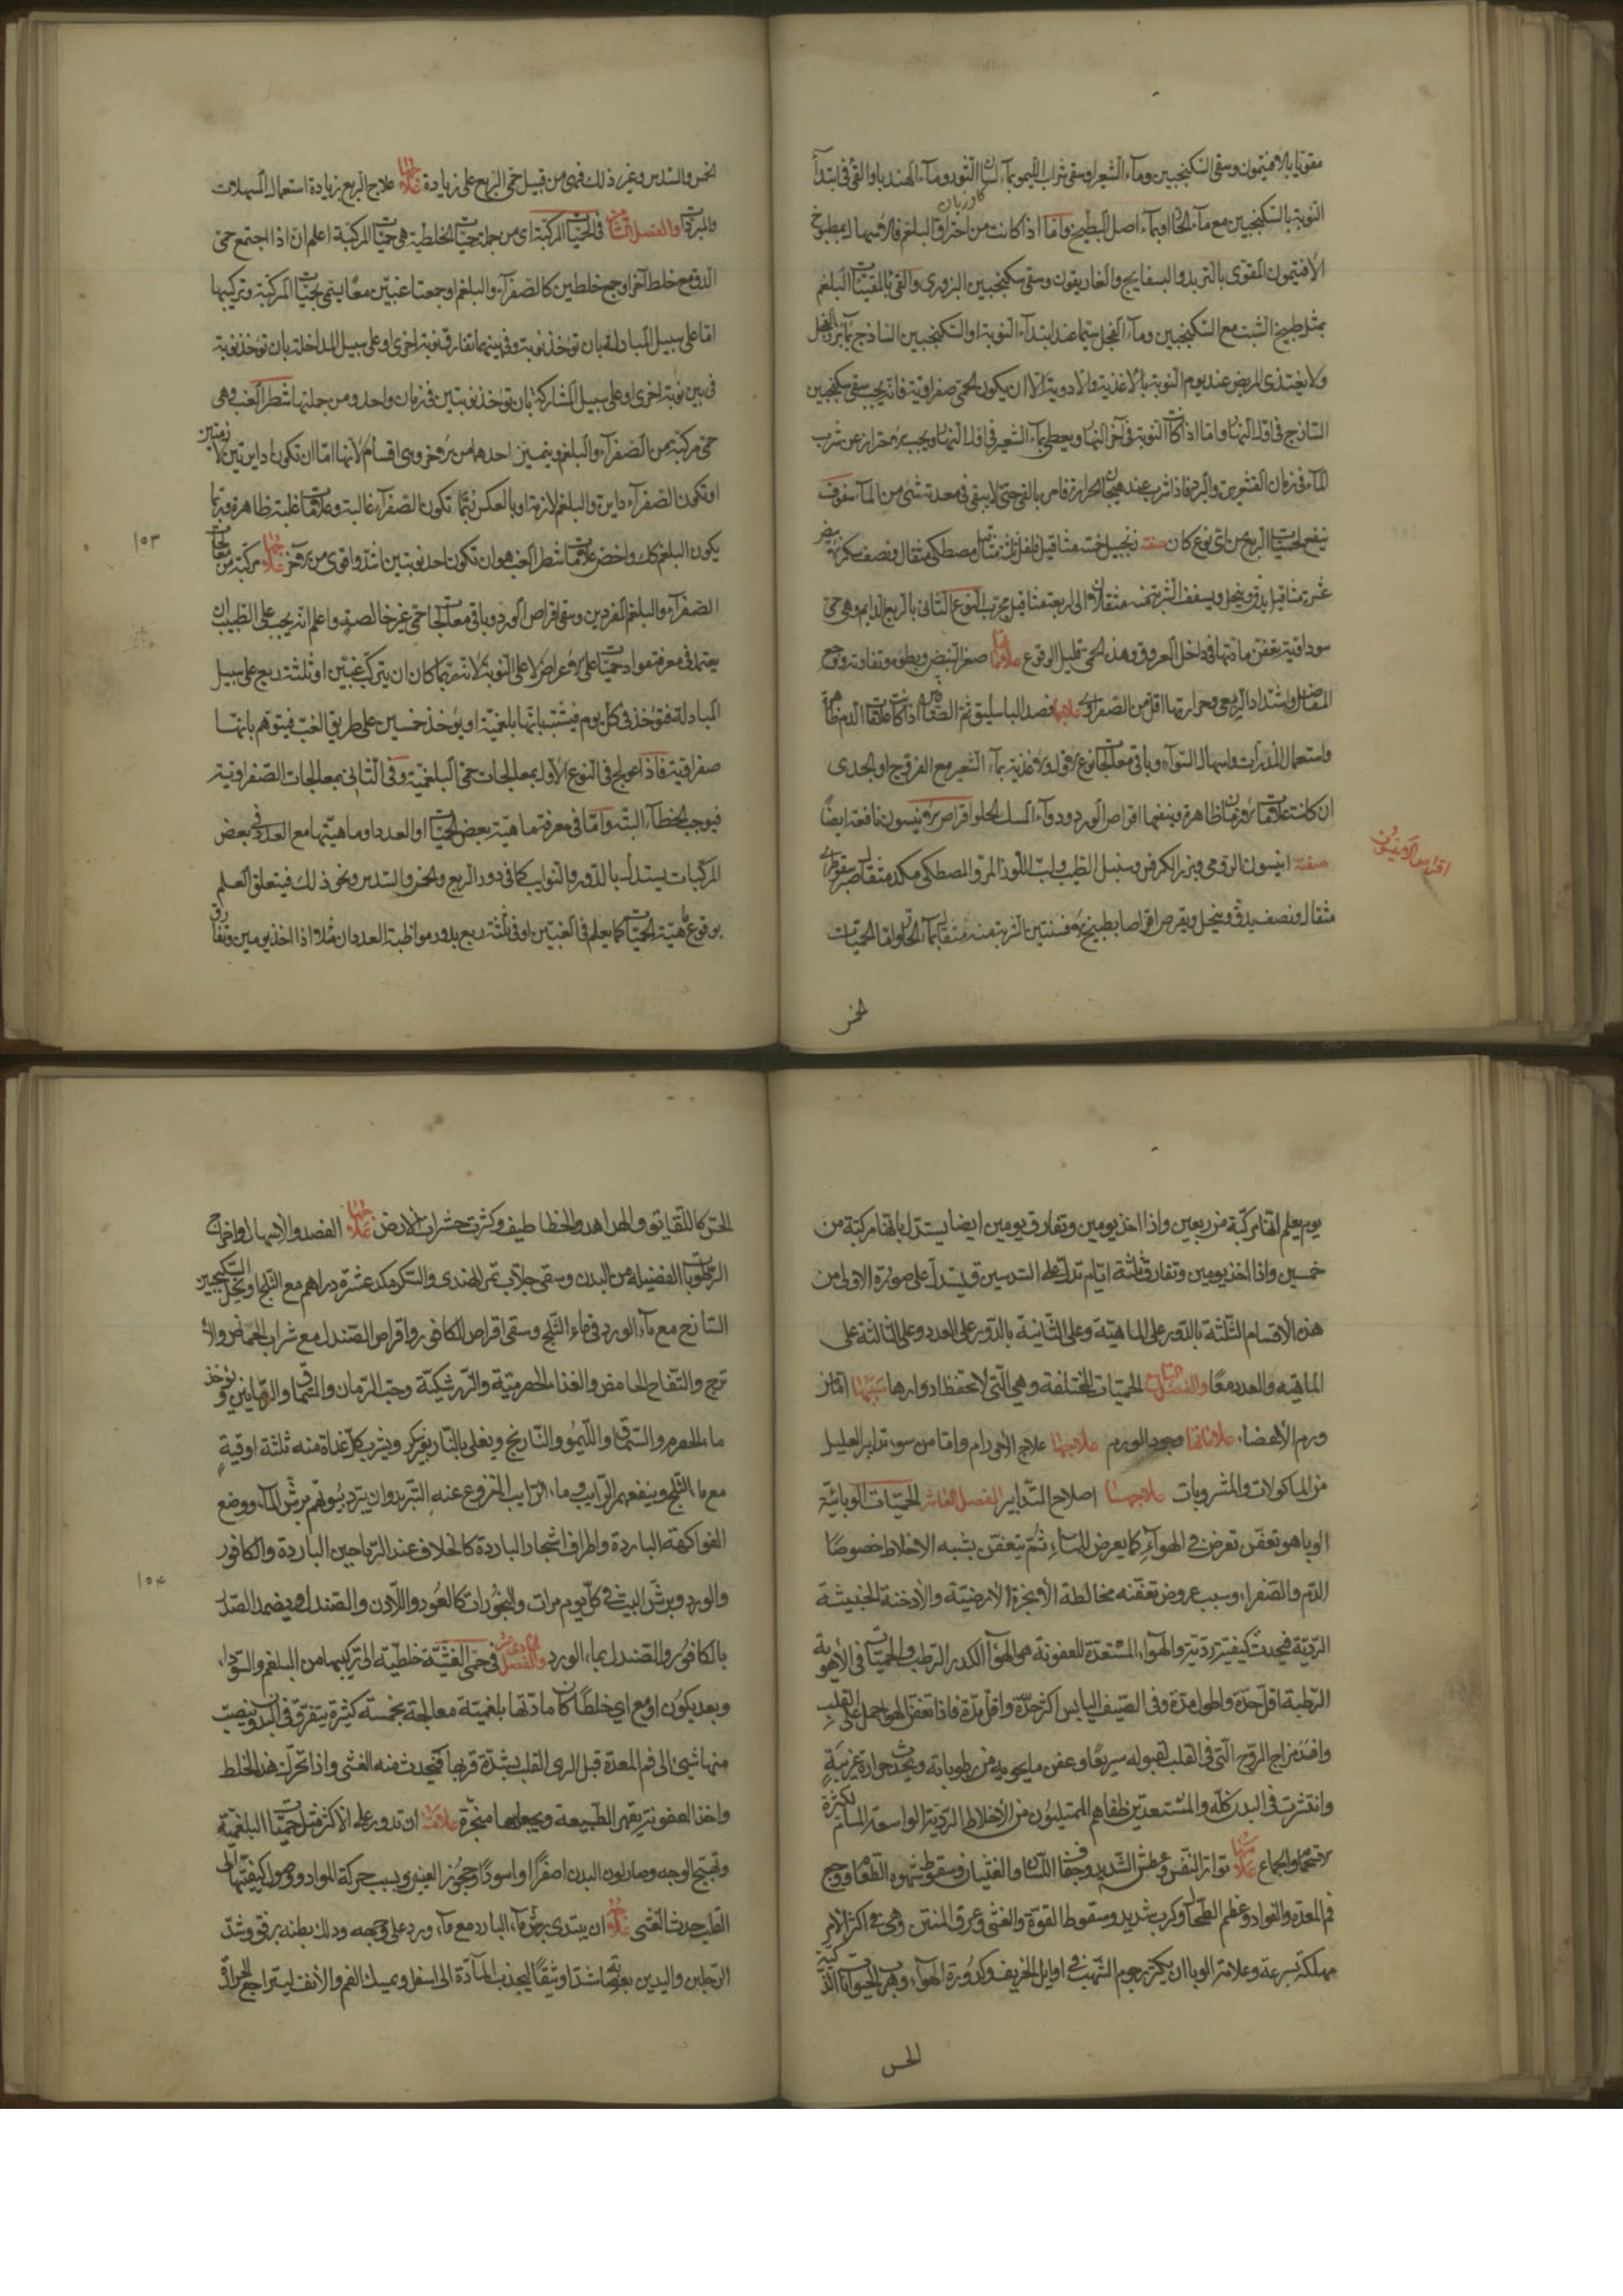 مقويا بالافتيمون وسقى السكنجبين وماء الشعير او سقى شراب الليمو بماء لسان الثور وماء الهندبا والقى فى ابتداء
النوبة بالسكنجبين مع ماء الحار او بماء اصل البطيخ واما اذا كانت من احتراق البلغم فالاسهال بمطبوخ
الافتيمون المقوى بالتربد والبسفايج والغاريقون وسقى سكنجبين البزورى والقى بالمقيئات البلغم
بمثل طبيخ الشبت مع السكنجبين وماء الفجل سيما عند ابتداء النوبة او السكنجبين الساذج بماء بزر الفجل
ولا يغتذى المريض عند يوم النوبة بالاغذية والادوية الا ان يكون الحمى صفراوية فانه يجب سقى سكنجبين
الساذج فى اول النهار واما اذا كانت النوبة فى آخر النهار ويعطى بماء الشعير فى اول النهار ويجب الاحتراز عن شرب
الماء فى زمان القشعريرة والبرد فاذا شرب عند هيجان الحرارة فامر بالقى حتى لا يبقى فى معدته شئ من الماء سفوف
ينفع لحميات الربع من اى نوع كان صفته زنجبيل خمسة مثاقيل فلفل ثلثة مثاقيل مصطكى مثقال ونصف سكر ابيض
عشرة مثاقيل يدق وينخل ويسفف الشربة منه مثقالان الى اربعة مثاقيل مجرب النوع الثانى بالربع الدايم وهى حمى
سوداوية تعفن مادتها فى داخل العروق وهذه الحمى قليل الوقوع علاماتها صغر النبض وبطؤه وتفاوته ووجع
المفاصل واشتداد الربعى وحرارتها اقل من الصفراوية علاجها فصد الباسليق ثم الصافن اذا كانت علامات الدم ظاهرة
واستعمال المدرات واسهال السوداء وباقى معالجات نوع الاول والاغذية بماء الشعير مع الفروج او الجدى
ان كانت علامات الازمان ظاهرة وينفعها اقراص الورد ودواء المسك الحلو اقراص الانيسون نافعة ايضا
اقراص الانيسون
صفته انيسون الرومى وبزر الكرفس وسنبل الطيب ولب اللوز المر والمصطكى مكد مثقال صبر سقوطرى
مثقال ونصف يدق وينخل ويقرص اقراصا بطبيخ الافسنتين الشربة منه مثقال بماء الحار واما الحميات
الخمس
الخمس والسدس وغير ذلك فهى من قبيل حمى الربع على زيادة علاجها علاج الربع بزيادة استعمال المسهلات
والمبردات والفصل الثامن فى الحميات المركبة اى من جملة حميات الخلطية هى حميات المركبة اعلم ان اذا اجتمع حمى
الدق مع خلط آخر او جمع خلطين كالصفراء والبلغم او جمعتا غبتين معا يسمى بحميات المركبة وتركيبها
اما على سبيل المبادلة بان تؤخذ نوبة وفى بينهما تفارقه نوبة اخرى او على سبيل المداخلة بان تؤخذ نوبة
فى بين نوبة اخرى او على سبيل المشاركة بان تؤخذ نوبتين فى زمان واحد ومن جملتها شطر الغب وهى
حمى مركبة من الصفراء والبلغم ويتميز احدهما من الاخر وهى اقسام لانها اما ان تكون دايرتين او لازمتين
او تكون الصفراء دايرة والبلغم لازمة او بالعكس ربما تكون الصفراء غالبة وعلامات غلبته ظاهرة وربما
يكون البلغم كك واخص علامات شطر الغب هو ان تكون احد نوبتين اشد واقوى من الاخر علاجها مركبة من معالجات
١٥٣
الصفراء والبلغم المفردين وسقى اقراص الورد وباقى معالجات حمى غير خالصة واعلم انه يجب على الطبيب ان
يعتمد فى معرفة مواد حميات على الاعراض لا على النوبة لانه ربما كان ان يتركب غبتين او ثلثة ربع على سبيل
المبادلة فتؤخذ فى كل يوم فيشتبه بانها بلغمية او يؤخذ خمسين على طريق الغب فيتوهم بانها
صفراوية فاذا عولج فى النوع الاول بمعالجات حمى البلغمية وفى الثانى بمعالجات الصفراوية
فيوجب الخطاء البتة واما فى معرفة ماهية بعض الحميات او العدد او ماهيتها مع العدد فى بعض
المركبات يستدل بالدور والنوايب كما فى دور الربع والخمس والسدس ونحو ذلك فيتعلق العلم
بوقوع ماهية الحميات كما يعلم فى الغبتين او فى ثلثة ربع بدور مواظبة العدد ان مثلا اذا اخذ يومين وتفارق
يوم يعلم انها مركبة من ربعين واذا اخذ يومين وتفارق يومين ايضا يستدل بانها مركبة من
خمسين واذا اخذ يومين وتفارق ثلثة ايام تدل على السدسين فيستدل على صورة الاولى من
هذه الاقسام الثلثة بالدور على الماهية وعلى الثانية بالدور على العدد وعلى الثالثة على
الماهية والعدد معا والفصل التاسع الحميات المختلفة وهى التى لا تحفظ ادوارها سببها اما من
ورم الاعضا، علاماتها وجود الورم علاجها علاج الاورام واما من سوء تدابير العليل
من الماكولات والمشروبات علاجها اصلاح التدابير الفصل العاشر الحميات الوبائية
الوبا هو تعفن تعرض فى الهواء كما يعرض للماء ثم يتعفن بشبه الاخلاط خصوصا
الدم والصفرا، وسبب عروض تعفنه مخالطة الابخرة الارضية والادخنة الخبيثة
الردية فيحدث كيفية ردية والهواء المستعدة للعفونة هى الهواء الكدر الرطب والحميات فى الاهوية
الرطبة اقل حدة واطول مدة وفى الصيف اليابس اكثر حدة واقل مدة فاذا تعفن الهواء حمل على القلب
وافسد مزاج الروح التى فى القلب لقبوله سريعا وعفن ما يحويه من رطوباته ويحدث حرارة غريبة
وانتشرت فى البدن كله والمستعدين ظفاهم الممتليون من الاخلاط الردية الواسعة المسام لكثرة
الاستحمام والجماع علاماتها تواتر النفس وعطش الشديد وجفاف اللسان والغثيان وسقوط شهوة الطعام ووجع
فم المعدة والفواد وعظم الطحال وكرب شديد وسقوط القوة والغشى وعرق المنتن وهى فى اكثر الامر
مهلكة بسرعة وعلامة الوبا ان يكثر رجوم الشهب فى اوايل الخريف وكدورة الهواء وهرب الحيوانات الذكية
الحس
الحس كاللقالق والهداهد والخطاطيف وكثرت حشرات الارض علاجها الفصد والاسهال واخراج
الرطوبات الفضيلة من البدن وسقى جلاب تمر الهندى والسكر مكد عشرة دراهم مع الثلج او بخل السكنجبين
الساذج مع ماء الورد فى ماء الثلج وسقى اقراص الكافور واقراص الصندل مع شراب الحماض والا
ترج والتفاح الحامض والغذاء الحصرمية والزرشكية وحب الرمان والسماق والرمانين ويؤخذ
ماء الحصرم والسماق والليمو والنارنج ويغلى بالنار بغير سكر ويشرب كل غداة منه ثلثة اوقية
مع ماء الثلج وينفعهم الرايب وماء الرايب المنزوع عنه الزبد وان يبرد بيوتهم برش الماء ووضع
الفواكهة الباردة واطراف اشجار الباردة كالخلاف عند الرياحين الباردة والكافور
١٥٤
والورد ويرش البيت فى كل يوم مرات والبخورات كالعود واللادن والصندل ويضمد الصدر
بالكافور والصندل بماء الورد والفصل الحادى عشر فى حمى الغشية خلطية الى تركيبها من البلغم والسودا،
وبعد يكون او مع اى خلط كان مادتها بلغمية معالجة بخمسة كثيرة يتفرق فى البدن وينصب
منها شئ الى فم المعدة قبل الرى القلب بشدة قربها فيحدث منه الغشى واذا تحرك هذا الخلط
واخذ العفونة يقهر الطبيعة ويجعلها متحيرة علامته ان تدور على الاكثر مثل حميات البلغمية
وتهيج الوجه وصار لون البدن اصفرا واسودا وبسبب حركة المواد ووصول كيفيتها الى
القلب حدث الغشى علاجه ان يبتدى برش ماء البارد مع ماء ورد على وجهه ودلك بطنه برفق وشد
الرجلين واليدين بعصابة شدا وثيقا ليجذب المادة الى اسفل ويمسك الفم والانف ليتراجع الحرارة